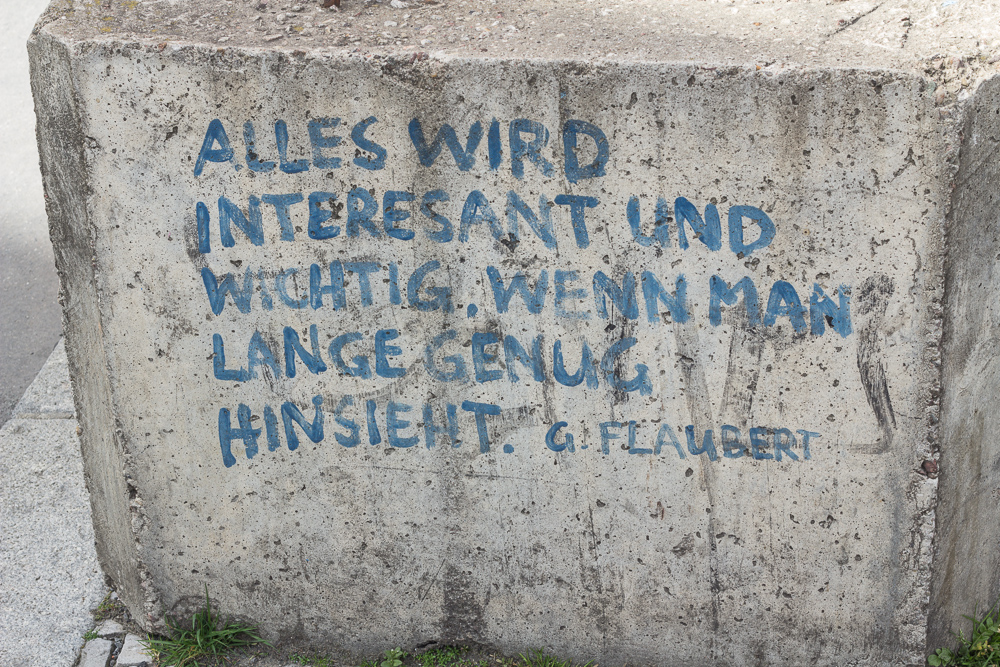 ALLES WIRD
INTERESANT UND
WICHTIG, WENN MAN
LANGE GENUG
HINSIEHT. G. FLAUBERT